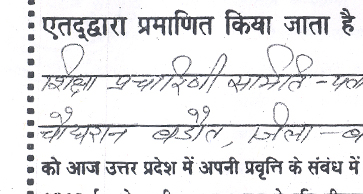 एतद्द्वारा प्रमाणित किया जाता है
शिक्षा प्रचारिणी समिति - पत
चौधरान बडौत, जिला - ब
को आज उत्तर प्रदेश में अपनी प्रवृत्ति के संबंध में